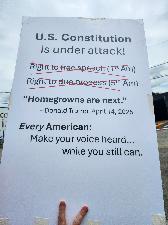 U.S. Constitution
is under attack!
Right to free speech (1st Am)
Right to due process (5th Am)
"Homegrowns are next."
- Donald Trump, April 14, 2025
Every American:
Make your voice heard...
while you still can.